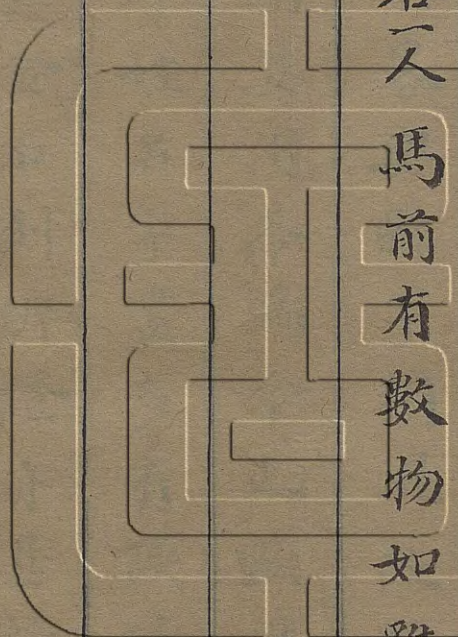 一人馬前有數物如